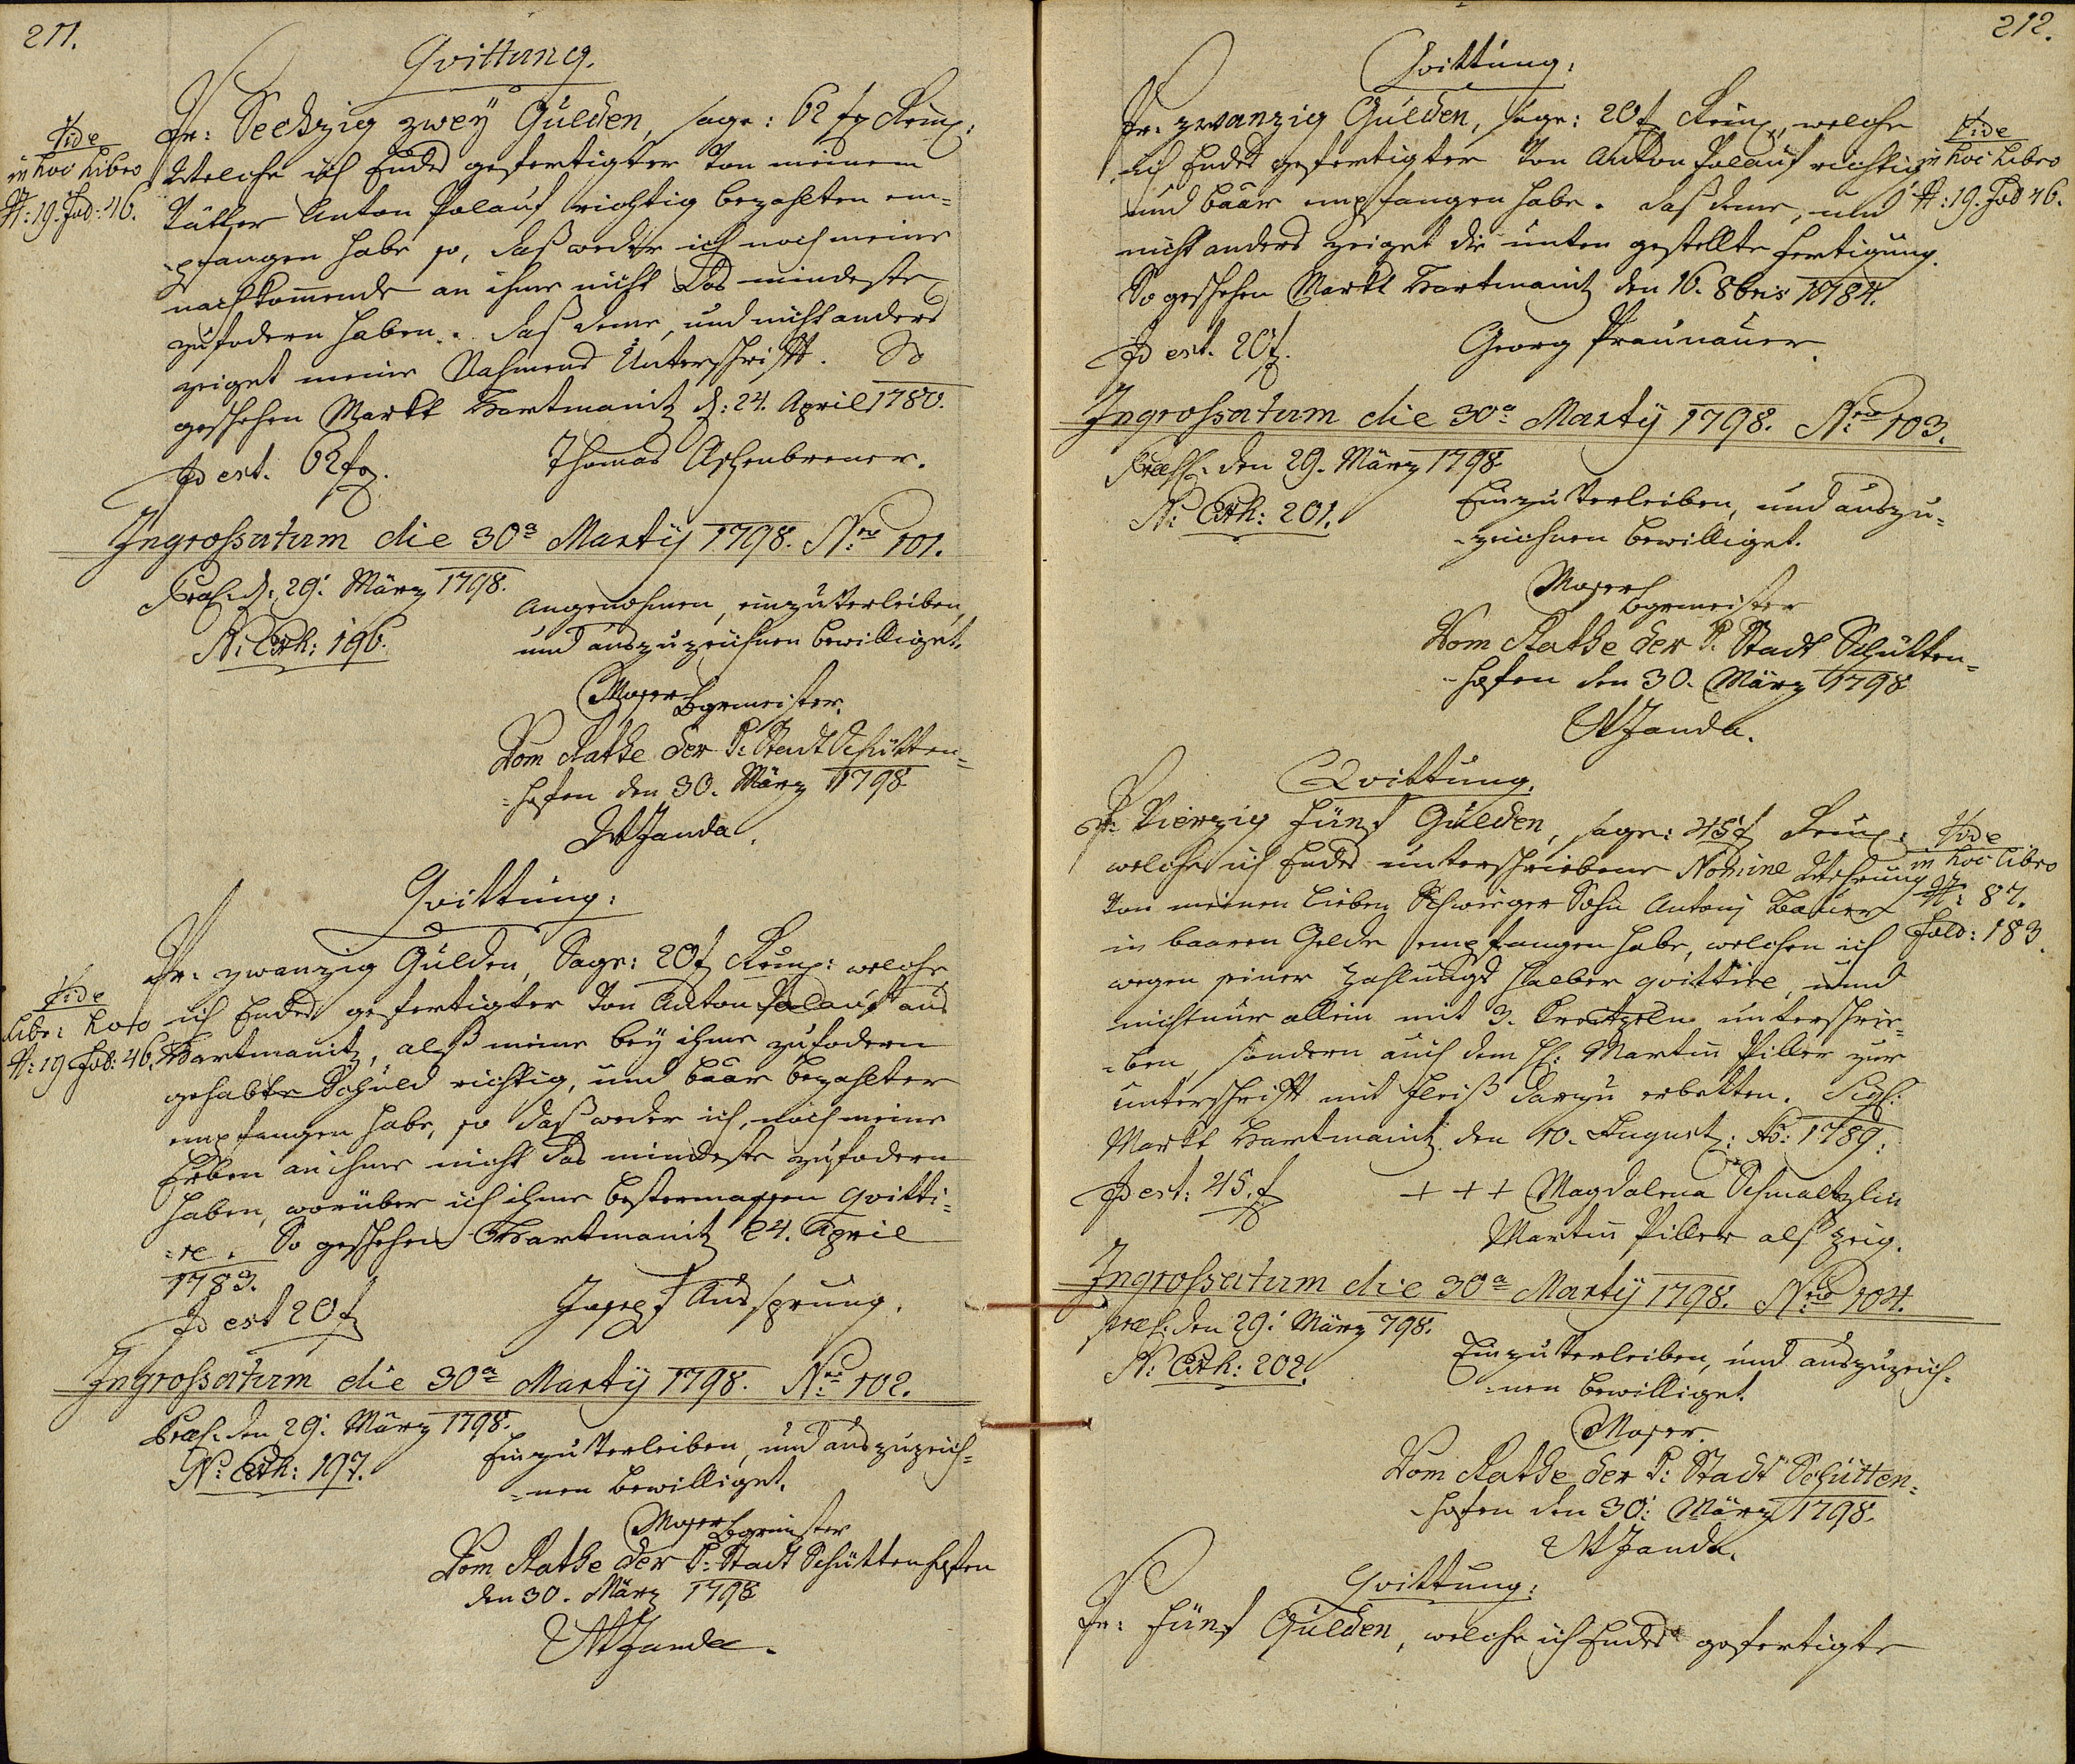 211.
Qvittung.
Pr: Sechzig zwey Gulden, sage: 62 f Reinl:
Welche ich Endes gefertigter von meinem
Vatter Anton Palauf richtig bezahlten em=
pfangen habe so, daß weder ich noch meine
nachkommende an ihme nicht das mindeste
zufodern haben. daß deme, und nicht anders
zeiget meine Nahmens Unterschrifft. So
geschehen Markt Hartmanitz d: 24. April 1780.
Id est. 62 f.
Thomas Aschenbrener.
Vide
in hoc Libro
N: 19. Fol: 46.
Ingrossatum die 30a Martÿ 1798. Nro 101.
Præs: d: 29: März 1798.
N: Exh: 196.
Angenohmen, einzuverleiben,
und auszuzeichnen bewilliget.
Moser Bgrmeister.
Vom Rathe der K: Stadt Schütten=
=hofen den 30. März 1798
W Janda.
Qvittung:
Pr: zwanzig Gulden, Sage: 20 f Reinl: welche
ich Endes gefertigter von Anton Palauf aus
Hartmanitz, alß meine bey ihme zufodern
gehabte Schuld richtig, und baar bezahlter
empfangen habe, so daß weder ich, noch meine
Erben an ihme nicht das mindeste zufodern
haben, worüber ich ihme bestermassen qvitti=
=re. So geschehen Hartmanitz 24. April
1783.
Id est 20 f
Joseph Aussprung.
Vide
Libr: hoco
N: 19 Fol: 46.
Ingrossatum die 30a Martÿ 1798. Nro 102.
Præs: den 29: März 1798.
N: Exh: 197.
Einzuverleiben, und auszuzeich=
=nen bewilliget.
Moser Bgrmeister
Vom Rathe der K: Stadt Schüttenhofen
den 30. März 1798
W Janda.
212.
Qvittung:
Pr: zwanzig Gulden, sage: 20 f Reinl, welche
ich Endes gefertigter von Anton Palauf richtig
und baar empfangen habe. daß deme, und
nicht anders zeiget die unten gestellte Fertigung.
So geschehen Markt Hartmanitz den 16. 8bris 1784.
Id est. 20 f.
Georg Praunauer.
Vide
in hoc Libro
N: 19. Fol 46.
Ingrossatum die 30a Martÿ 1798. Nro 103.
Præs: den 29. März 1798
N: Exh: 201.
Einzuverleiben, und auszu=
=zeichnen bewilliget.
Moser Bgrmeister
Vom Rathe der K. Stadt Schütten=
=hofen den 30. März 1798
W Janda.
Qvittung.
Pr: Vierzig fünf Gulden, sage: 45 f Reinl:
welche ich Endes unterschriebene Nomine Wehrung
von meinem lieben Schwieger Sohn Antonj Bauer
in baaren Gelde empfangen habe, welchen ich
wegen seiner Zahlungs halber qvittire, und
nicht nur allein mit 3. Creützeln unterschrie=
=ben, sondern auch dem H: Martin Piller zur
unterschrifft mit Fleiß darzu erbetten. Sigl:
Markt Hartmanitz den 10. August: Ao: 1789.
Id est: 45. f
+ + + Magdalena Schmaltzlin
Martin Piller alß Zeig.
Vide
in hoc libro
N: 87.
Fold: 183.
Ingrossatum die 30a Martÿ 1798. Nro 104.
præs: den 29: März 798.
N: Exh: 202.
Einzuverleiben, und auszuzeich=
=nen bewilliget.
Moser.
Vom Rathe der K: Stadt Schütten=
=hofen den 30: März 1798.
W Janda.
Qvittung:
Pr: Fünf Gulden, welche ich Endes gefertigte